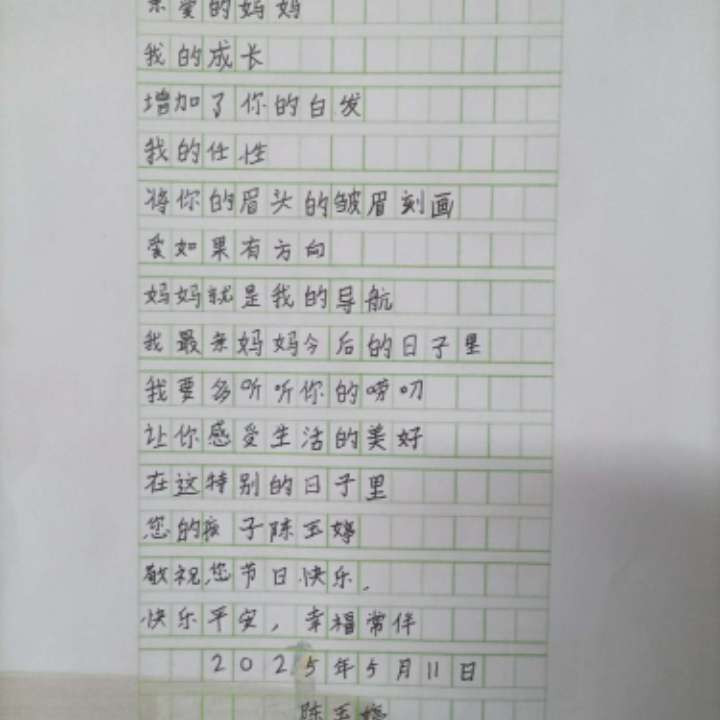 亲爱的妈妈
我的成长
增加了你的白发
我的任性
将你的眉头的皱眉刻画
爱如果有方向
妈妈就是我的导航
我最亲妈妈今后的日子里
我要多听听你的唠叨
让你感受生活的美好
在这特别的日子里
您的孩子陈玉婷
敬祝您节日快乐.
快乐平安,幸福常伴
2025年5月11日
陈玉婷